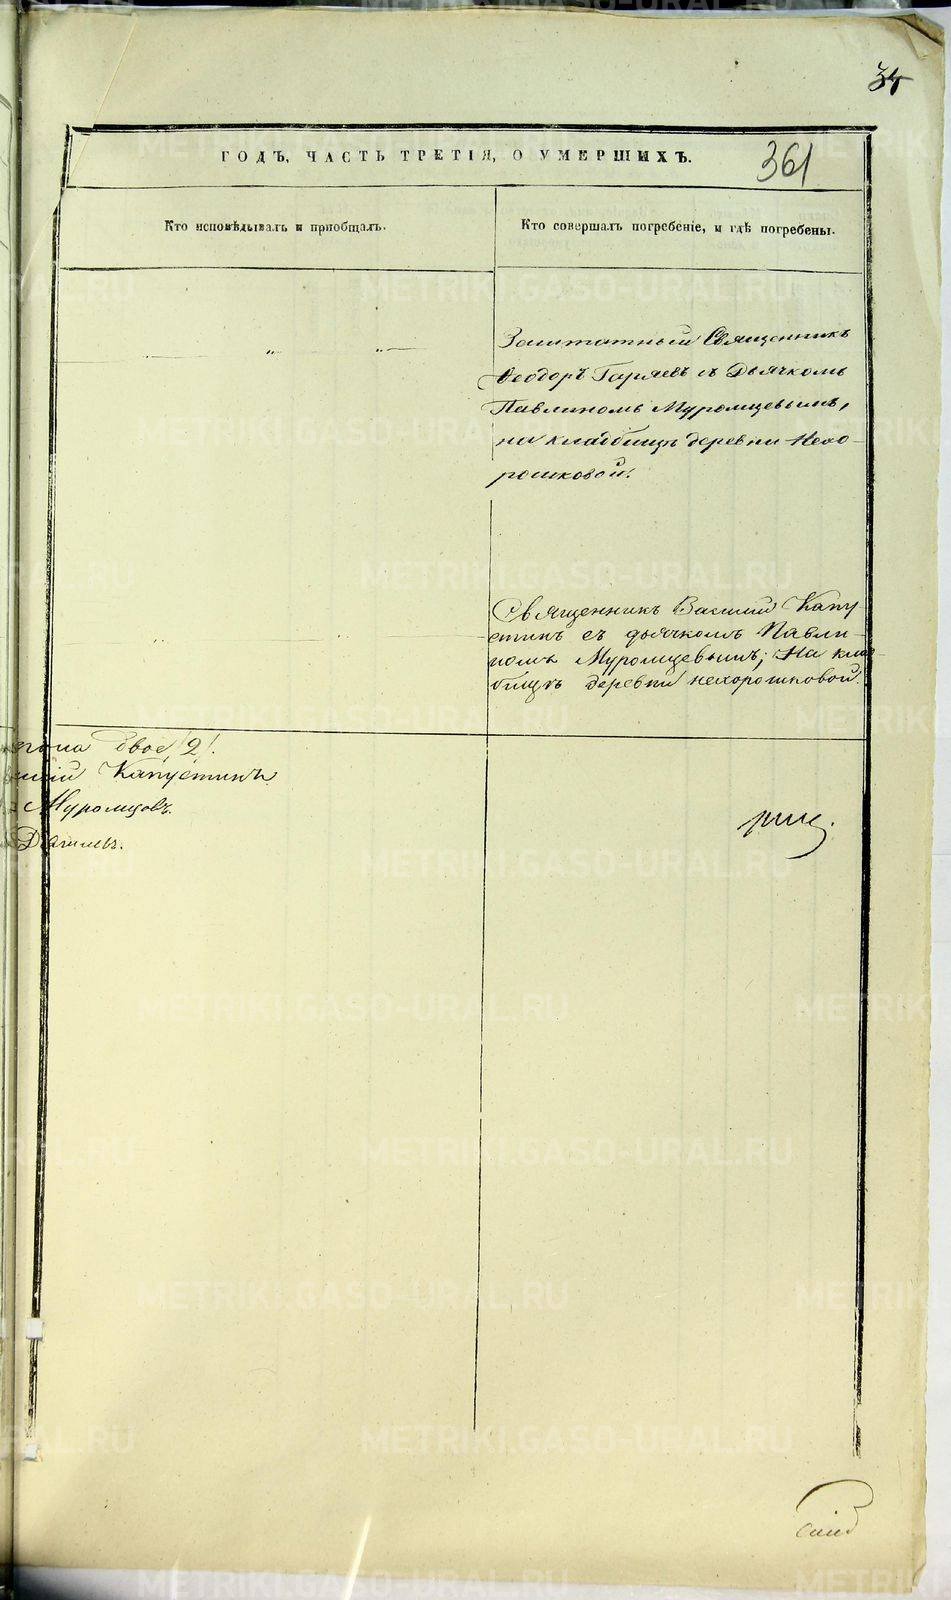 34
ГОДЪ, ЧАСТЬ ТРЕТІЯ, О УМЕРШИХЪ.
361
Кто исповѣдывалъ и пріобщалъ.
Кто совершалъ погребеніе, и гдѣ погребены.
Заштатный Священникъ
Ѳеодоръ Гаряевъ съ Дьячкомъ
Павлиномъ Муромцевымъ,
на кладбищѣ деревни Нехо-
рошковой.
Священникъ Василій Капу-
стинъ съ дьячкомъ Павли-
номъ Муромцевымъ; На клад-
бищѣ деревни нехорошковой.
пола двое 2.
силій Капустинъ
Муромцовъ.
METRIKI.GASO-URAL.RU